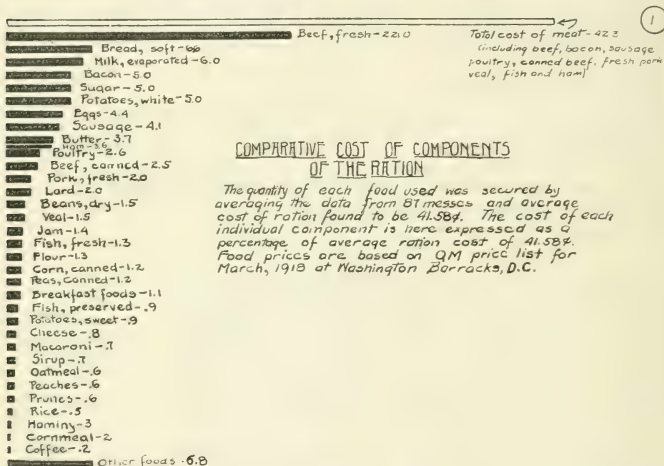 1
Beef, fresh-22.0
Total cost of meat-42.3
(including beef, bacon, sausage
poultry, canned beef, fresh pork
veal, fish and ham)
Bread, soft-6.6
Milk, evaporated-6.0
Bacon-5.0
Sugar-5.0
Potatoes, white-5.0
Eggs-4.4
Sausage-4.1
Butter-3.7
Ham-3.6
Poultry-2.6
Beef, canned-2.5
Pork, fresh-2.0
Lard-2.0
Beans, dry-1.5
Veal-1.5
Jam-1.4
Fish, fresh-1.3
Flour-1.3
Corn, canned-1.2
Peas, canned-1.2
Breakfast foods-1.1
Fish, preserved-.9
Potatoes, sweet-.9
Cheese-.8
Macaroni-.7
Sirup-.7
Oatmeal-.6
Peaches-.6
Prunes-.6
Rice-.5
Hominy-3
Cornmeal-2
Coffee-.2
Other foods-6.8
COMPARATIVE COST OF COMPONENTS
OF THE RATION
The quantity of each food used was secured by
averaging the data from 87 messes and average
cost of ration found to be 41.58¢. The cost of each
individual component is here expressed as a
percentage of average ration cost of 41.58¢.
Food prices are based on QM price list for
March, 1918 at Washington Barracks, D.C.